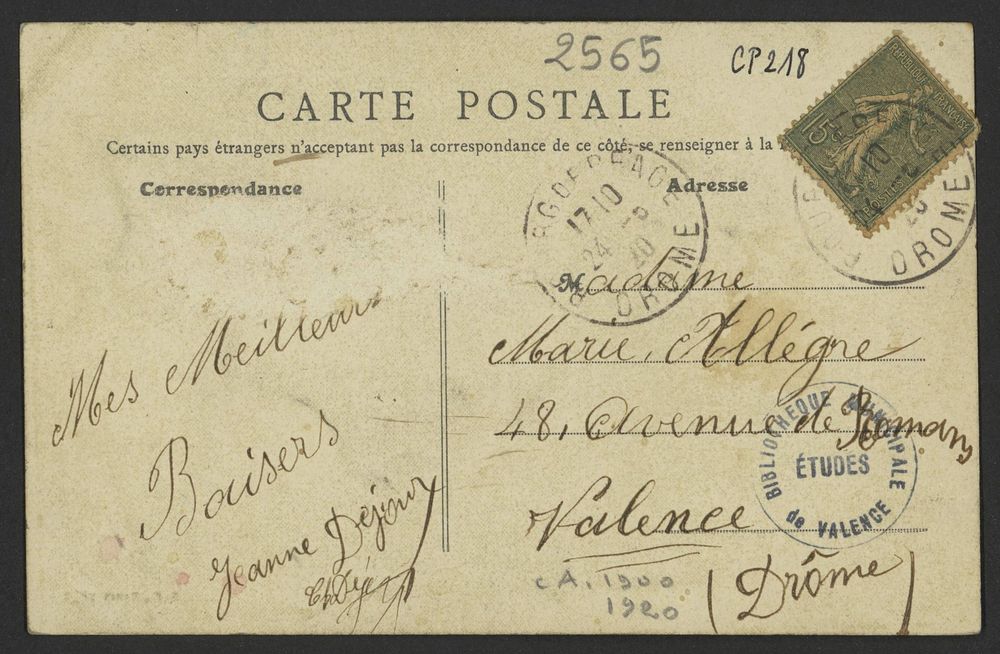 2565
CP218
CARTE POSTALE
Certains pays étrangers n'acceptant pas la correspondance de ce côté, se renseigner à la
Correspondance
Adresse
RÉPUBLIQUE FRANÇAISE
15c
POSTES
17·10
24
20
DROME
10
DROME
Madame
Marie, Allégne
48, Avenue de Romans
Valence
(Drôme)
Mes Meilleurs
Baisers
Jeanne Déjoux
BIBLIOTHEQUE MUNICIPALE
ÉTUDES
de VALENCE
CA. 1900
1920